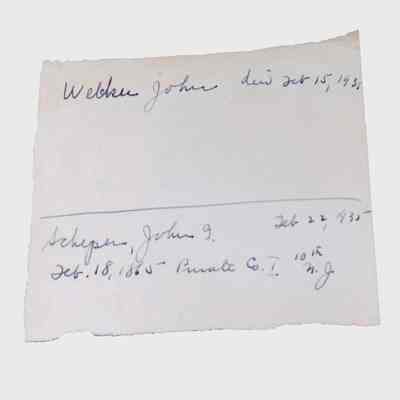 Webker John died Feb 15, 193
Schepers, John G. Feb 22, 1935
Feb. 18, 1865 Private Co. I. 10th N. J.